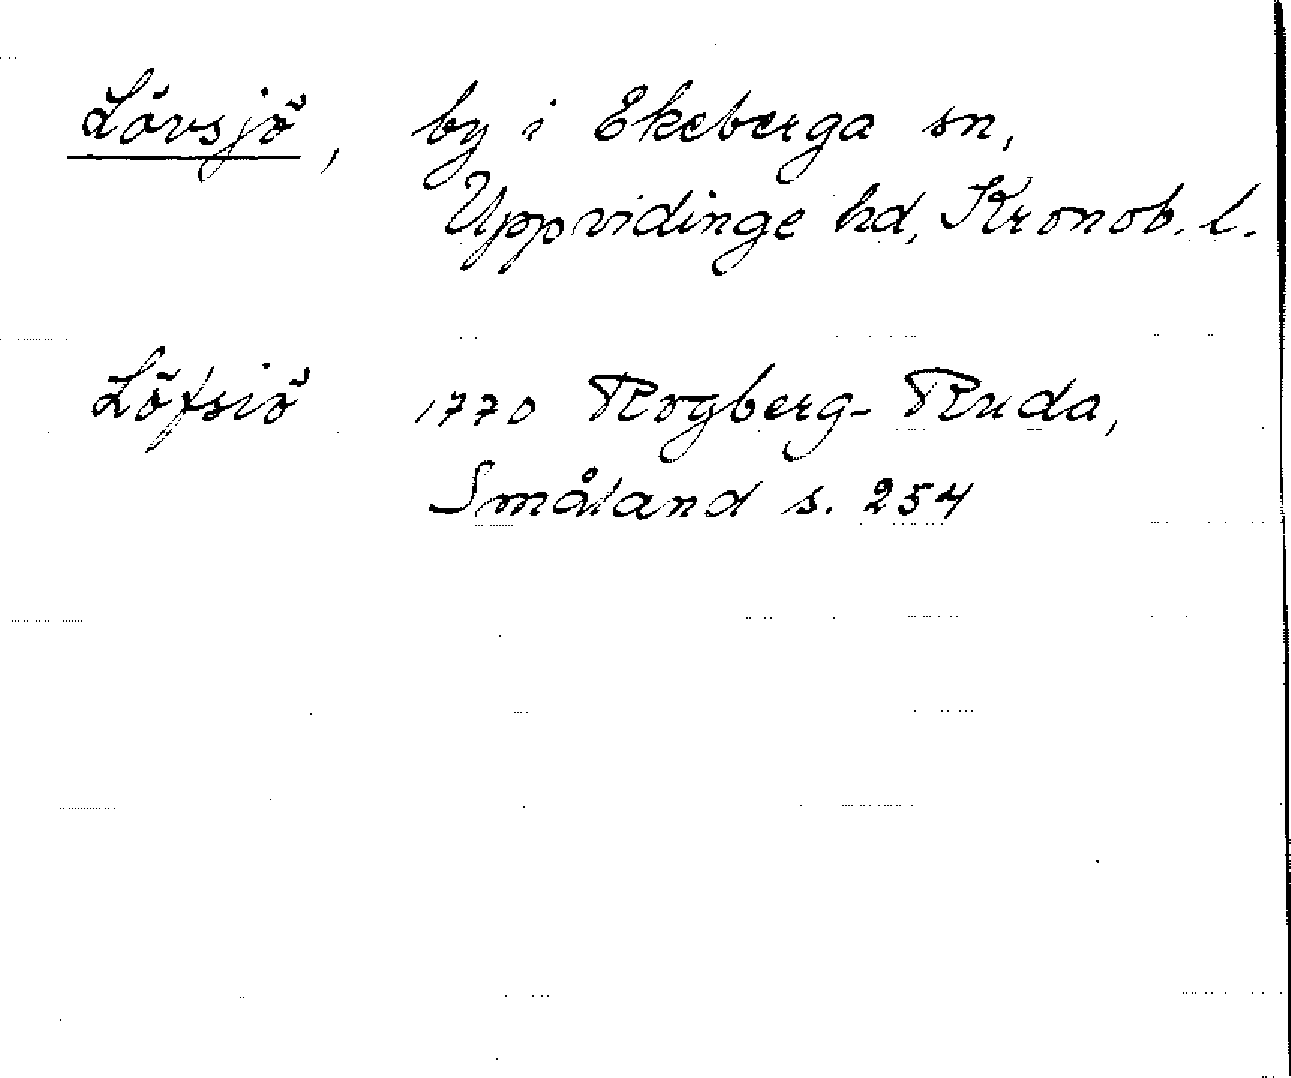 Lövsjö, by i Ekeberga sn,
Uppvidinge hd, Kronob. l.
Löfsiö 1770 Rogberg-Ruda,
Småland s. 254